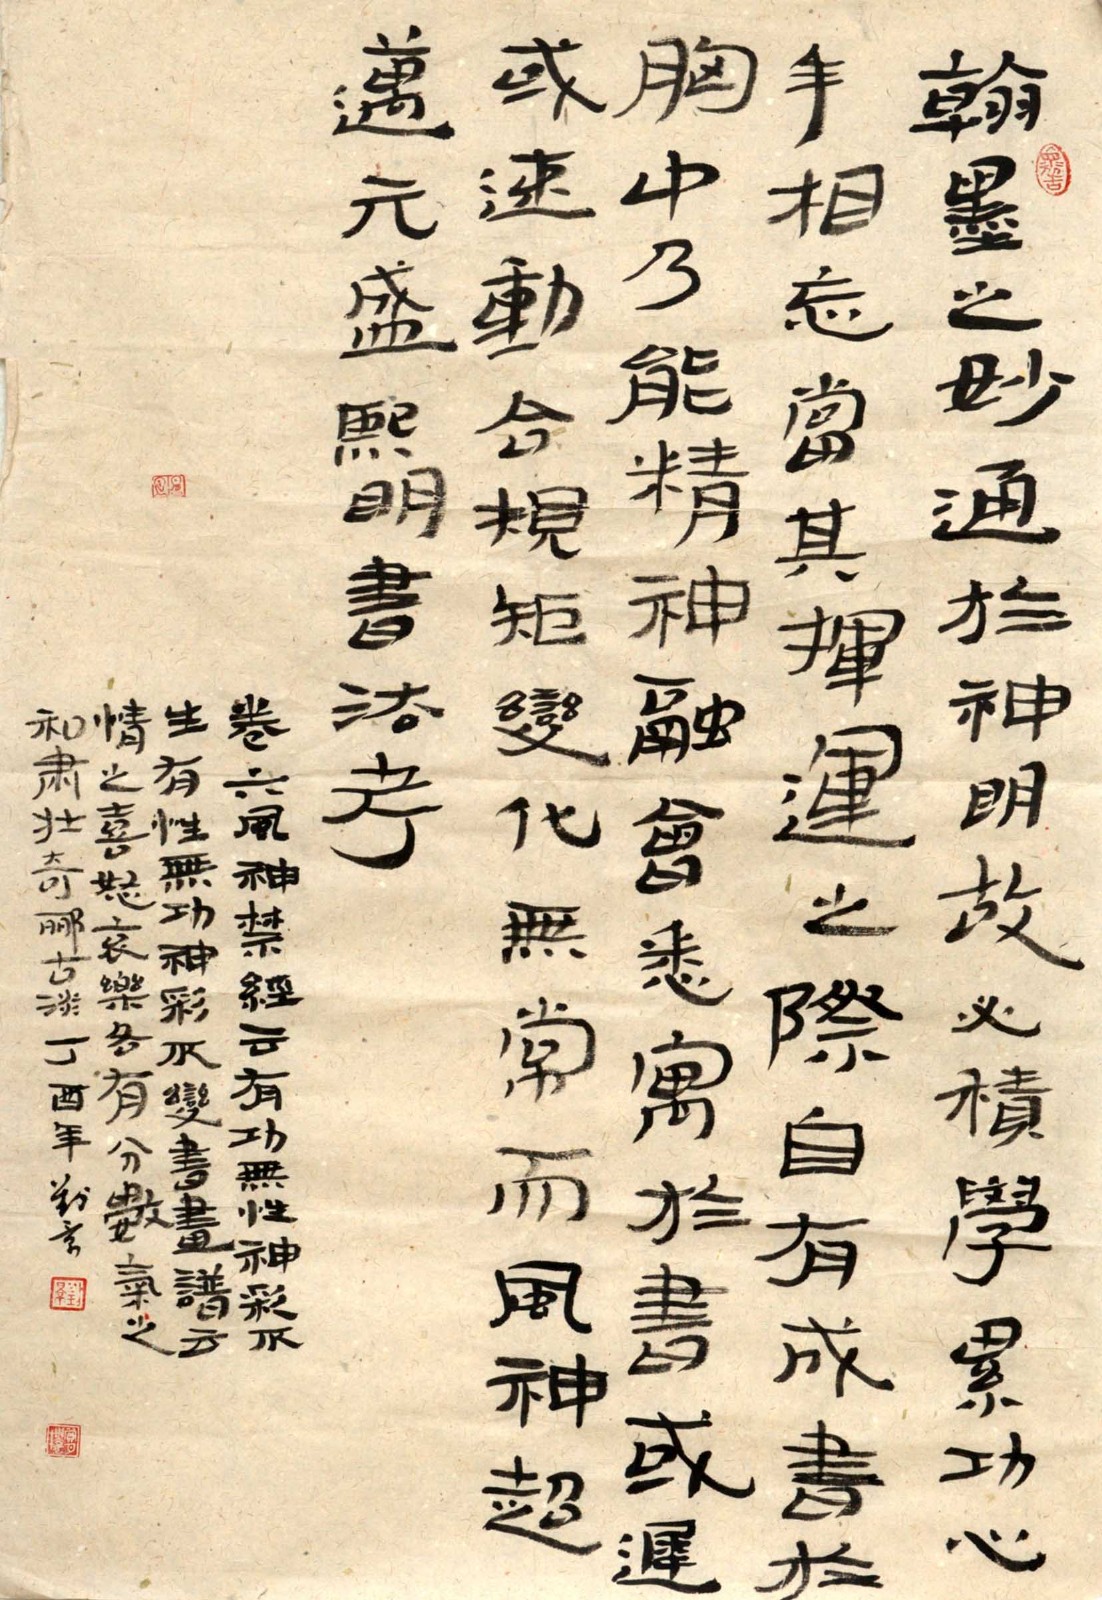 翰墨之妙通於神明故必積學累功心
手相忘當其揮運之際自有成書於
胸中乃能精神融會悉寓於書或遲
或速動合規矩變化無常而風神超
邁元盛熙明書法考
卷六風神禁經云有功無性神彩不
生有性無功神彩不變書畫譜云
情之喜怒哀樂各有分數氣之
和肅壯奇麗古淡丁酉年